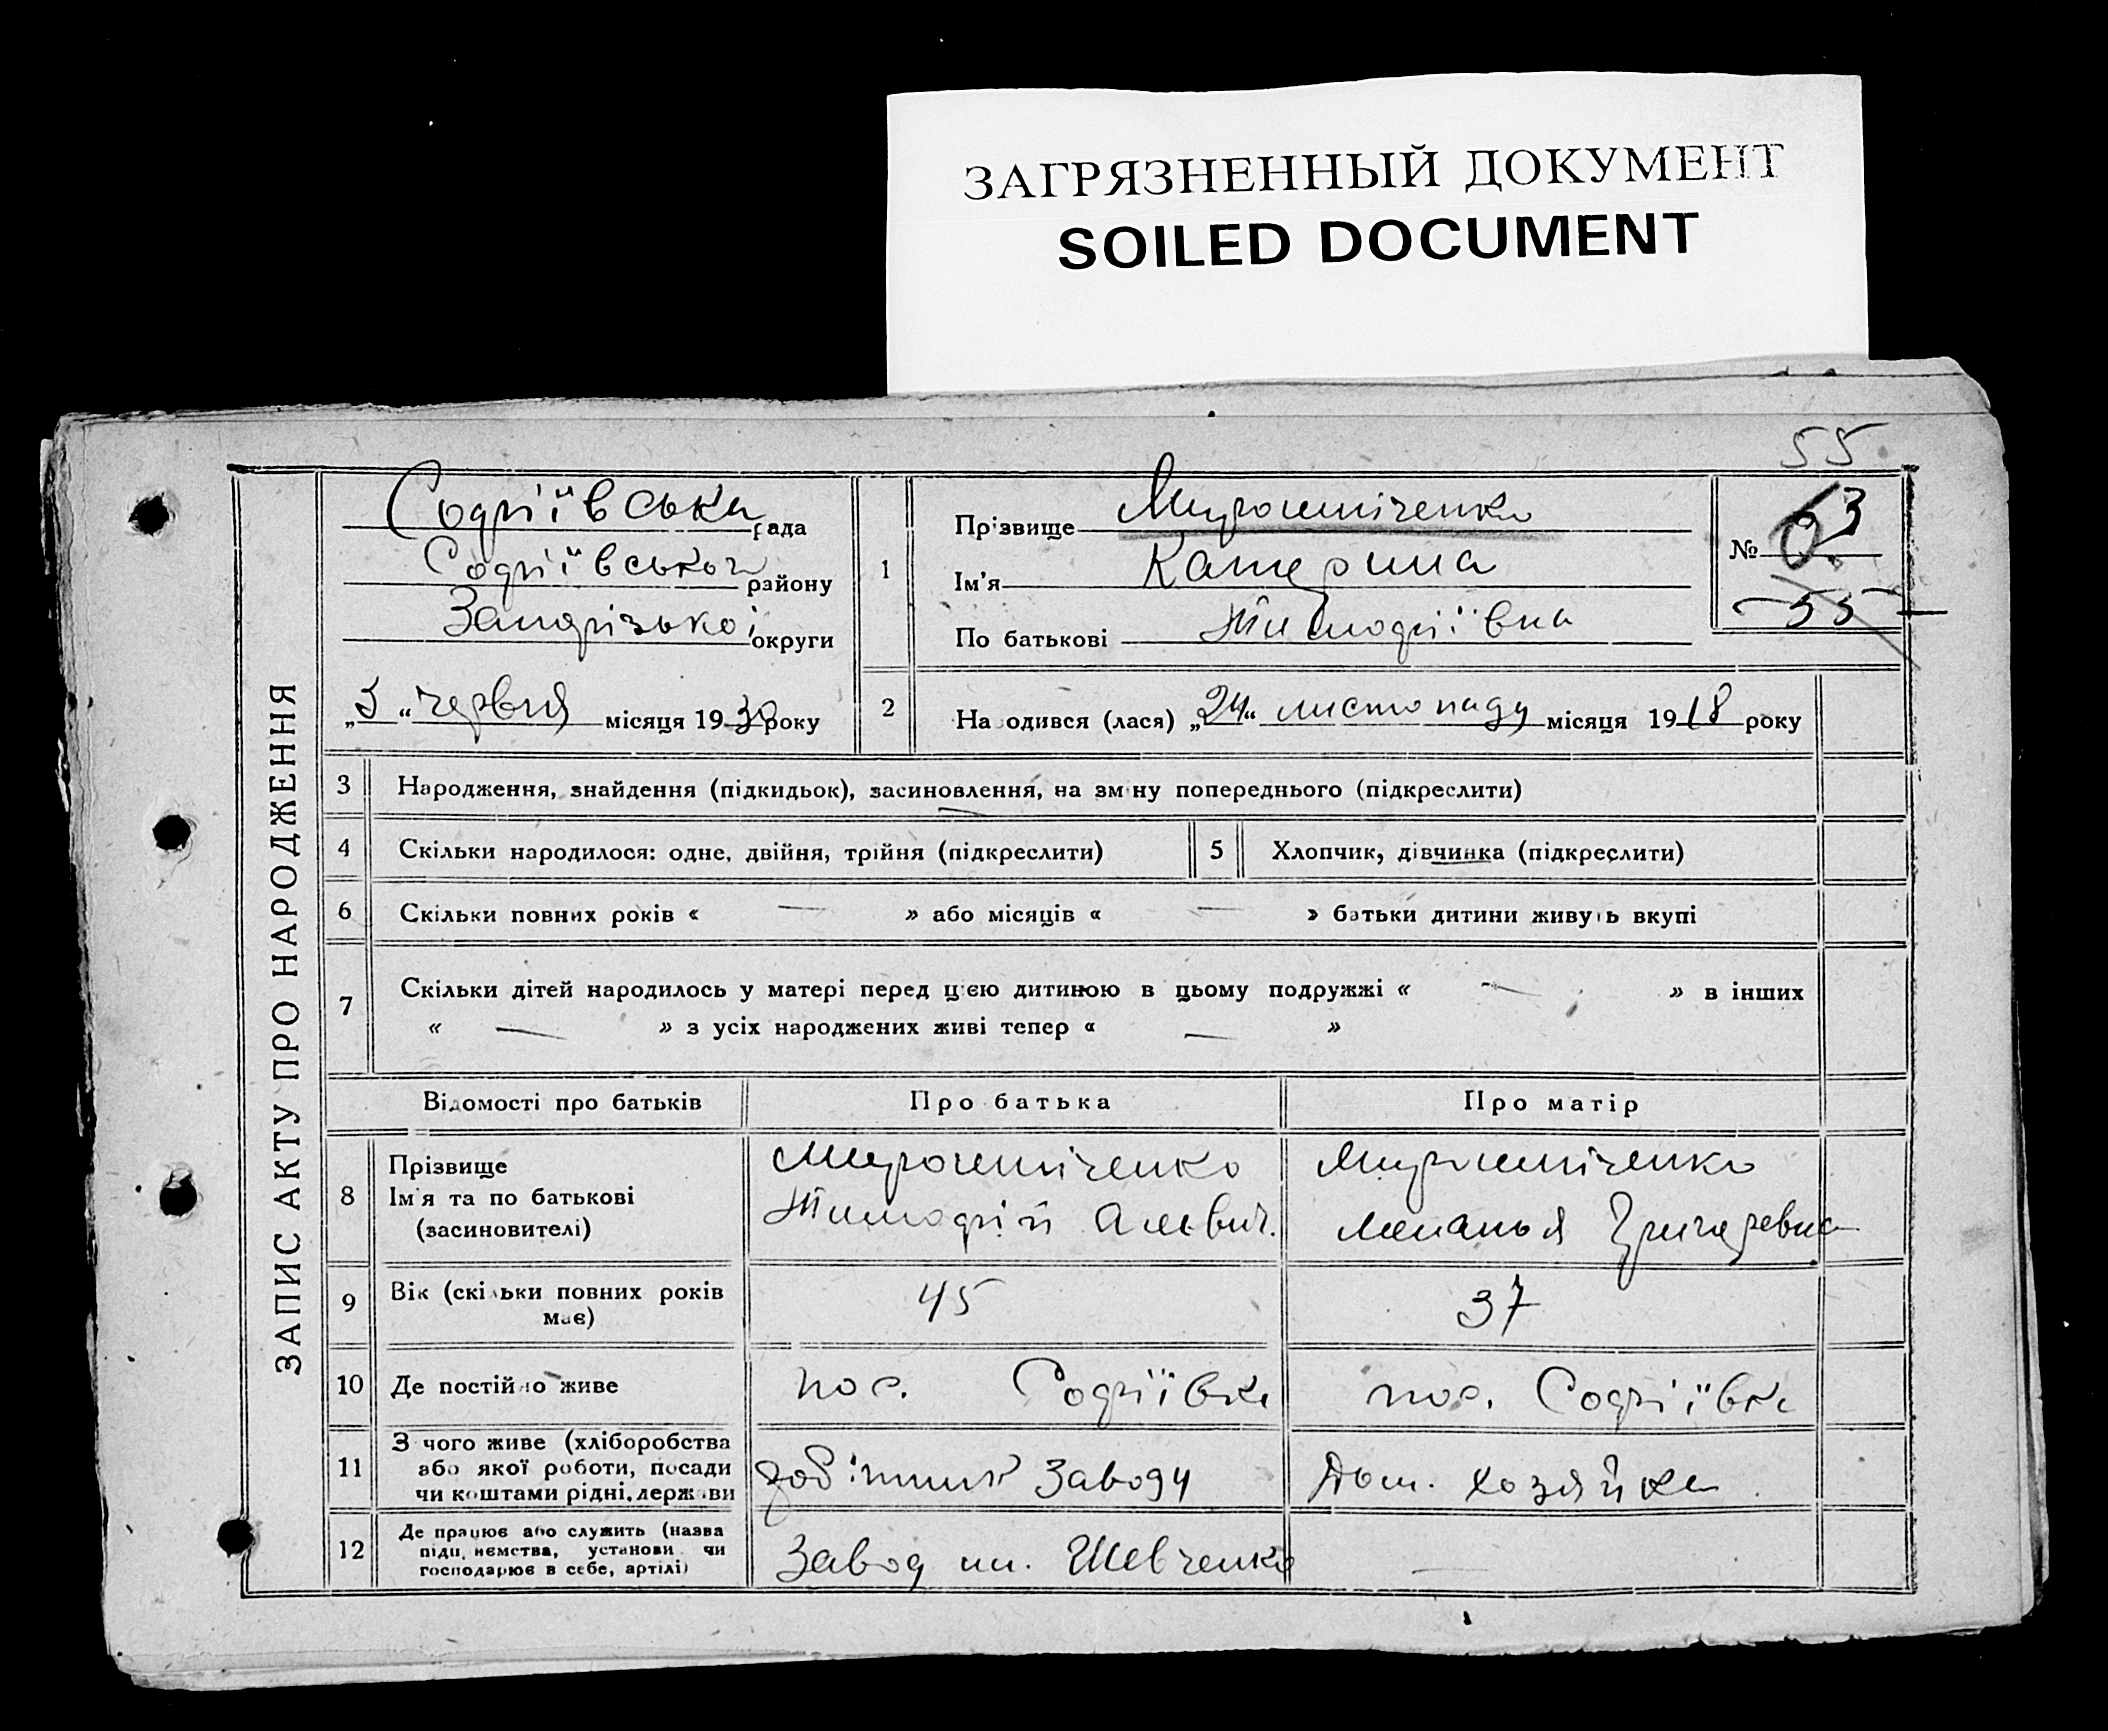 ЗАГРЯЗНЕННЫЙ ДОКУМЕНТ
SOILED DOCUMENT
55
ЗАПИС АКТУ ПРО НАРОДЖЕННЯ
Софіївська рада
Софіївського району
Запорізької округи
„5“ червня місяця 1930 року
1
Прізвище Мирошніченко
Ім'я Катерина
По батькові Тимофіївна
№ 63
55
2
Народився (лася) „24“ листопаду місяця 1918 року
3 Народження, знайдення (підкидьок), засиновлення, на зміну попереднього (підкреслити)
4 Скільки народилося: одне, двійня, трійня (підкреслити)
5 Хлопчик, дівчинка (підкреслити)
6 Скільки повних років « — » або місяців « — » батьки дитини живуть вкупі
7 Скільки дітей народилось у матері перед цією дитиною в цьому подружжі « — » в інших
« — » з усіх народжених живі тепер « — »
Відомості про батьків
Про батька
Про матір
8 Прізвище
Ім'я та по батькові
(засиновителі)
Мирошніченко
Тимофій
Мирошніченко
Меланья Григоревна
9 Вік (скільки повних років
має)
45
37
10 Де постійно живе
пос. Софіївка
пос. Софіївка
11 З чого живе (хліборобства
або якої роботи, посади
чи коштами рідні, держави
робітник заводу
Дом. хозяйка
12 Де працює або служить (назва
підприємства, установи чи
господарює в себе, артілі)
Завод им. Шевченко
—